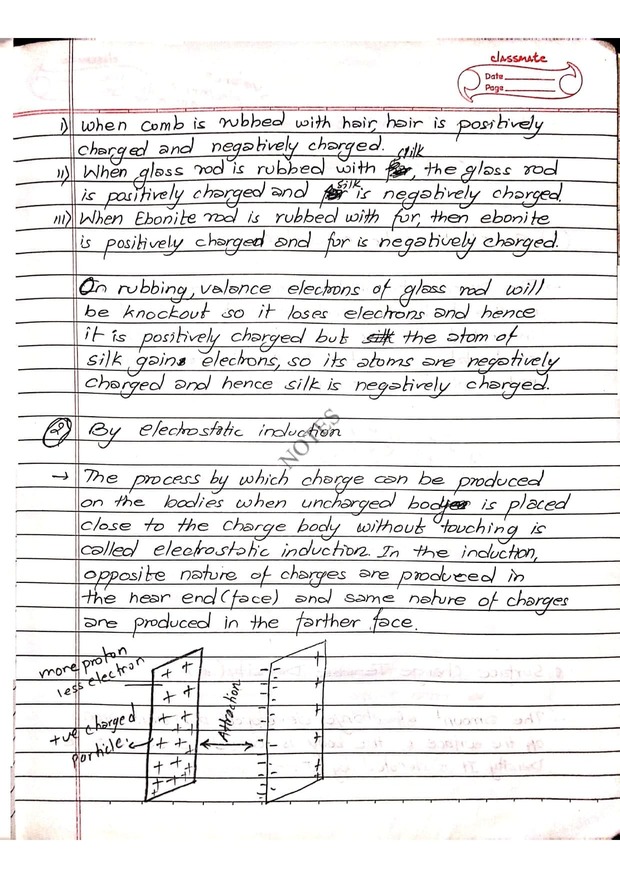 classmate
Date
Page
i) When comb is rubbed with hair, hair is positively
charged and negatively charged.
ii) When glass rod is rubbed with silk, the glass rod
is positively charged and silk is negatively charged.
iii) When Ebonite rod is rubbed with fur, then ebonite
is positively charged and fur is negatively charged.
On rubbing, valance electrons of glass rod will
be knockout so it loses electrons and hence
it is positively charged but silk the atom of
silk gains electrons, so its atoms are negatively
charged and hence silk is negatively charged.
② By electrostatic induction
NOTES
→ The process by which charge can be produced
on the bodies when uncharged body is placed
close to the charge body without touching is
called electrostatic induction. In the induction,
opposite nature of charges are produced in
the near end (face) and same nature of charges
are produced in the farther face.
more proton
less electron
+ve charged
particle.
Attraction